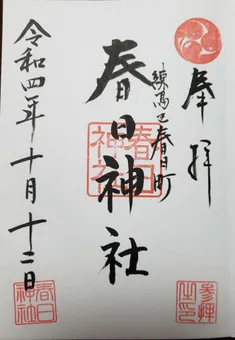 奉拝
練馬区春日町
春日神社
春日神社
令和四年十月十二日
参拝之印
春日神社